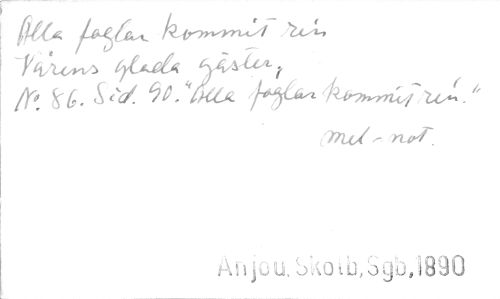 Alla foglar kommit re'n
Vårens glada gäster,
No. 86. Sid. 90. "Alla foglar kommit re'n."
mel-not.
Anjou, Skolb, Sgb, 1890